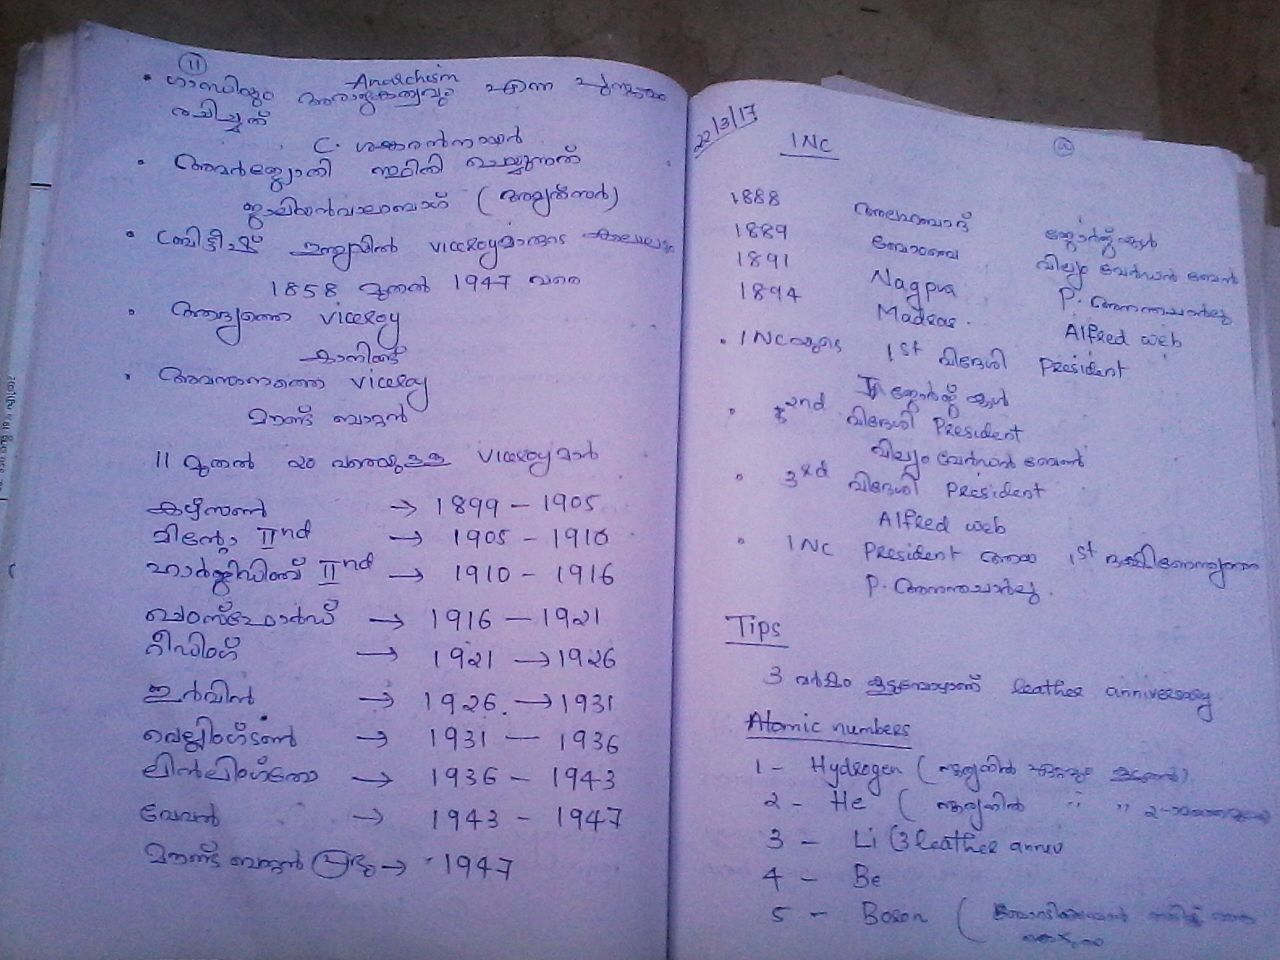 11
Anarchism
ഗാന്ധിയും അരാജകത്വവും എന്ന പുസ്തകം
രചിച്ചത്
C. ശങ്കരൻനായർ
അമർജ്യോതി സ്ഥിതി ചെയ്യുന്നത്
ജാലിയൻവാലാബാഗ് (അമൃത്സർ)
ബ്രിട്ടീഷ് ഇന്ത്യയിൽ viceroyമാരുടെ കാലഘട്ടം
1858 മുതൽ 1947 വരെ
ആദ്യത്തെ viceroy
കാനിങ്ങ്
അവസാനത്തെ viceroy
മൗണ്ട് ബാറ്റൻ
11 മുതൽ 20 വരെയുള്ള viceroyമാർ
കഴ്സൺ → 1899 – 1905
മിന്റോ IInd → 1905 – 1910
ഹാർഡിഞ്ച് IInd → 1910 – 1916
ചെംസ്ഫോർഡ് → 1916 – 1921
റീഡിംഗ് → 1921 → 1926
ഇർവിൻ → 1926. → 1931
വെല്ലിംഗ്ടൺ → 1931 – 1936
ലിൻലിംഗ്തോ → 1936 – 1943
വേവൽ → 1943 – 1947
മൗണ്ട് ബാറ്റൻ → 1947
22/3/17
INC
1888 അലഹബാദ് ജോർജ്ജ് യൂൾ
1889 ബോംബെ വില്യം വേഡർബേൺ
1891 Nagpur P. അനന്തചാർലു
1894 Madras. Alfred web
INCയുടെ 1st വിദേശി President
ജോർജ്ജ് യൂൾ
2nd വിദേശി President
വില്യം വേഡർബേൺ
3rd വിദേശി President
Alfred web
INC President ആയ 1st ദക്ഷിണേന്ത്യൻ
P. അനന്തചാർലു.
Tips
3 വർഷം കൂടുമ്പോഴാണ് leather anniversary
Atomic numbers
1 – Hydrogen (സൂര്യനിൽ ഏറ്റവും കൂടുതൽ)
2 – He (സൂര്യനിൽ " "
3 – Li (3 leather anniv
4 – Be
5 – Boron (